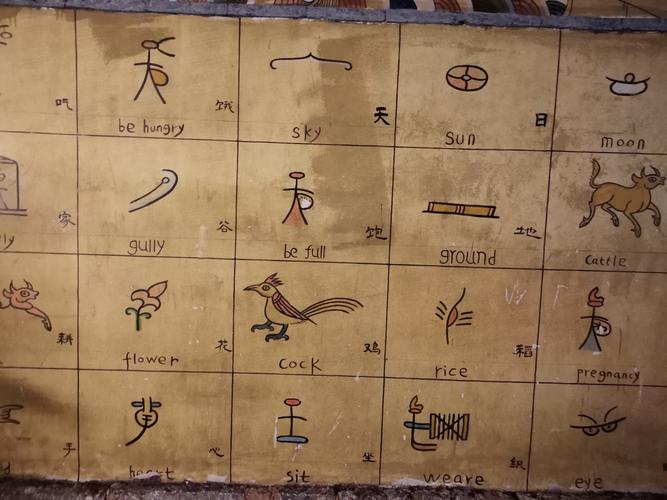 吃
be hungry 饿
sky 天
sun 日
moon
ly 家
gully 谷
be full 饱
ground 地
cattle
耕
flower 花
cock 鸡
rice 稻
pregnancy
d 手
heart 心
sit 坐
weare 织
eye